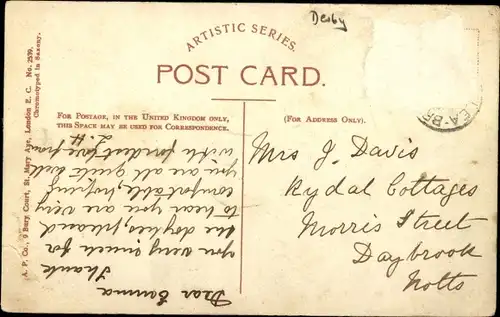 Derby
ARTISTIC SERIES.
POST CARD.
FOR POSTAGE, IN THE UNITED KINGDOM ONLY,
THIS SPACE MAY BE USED FOR CORRESPONDENCE.
(FOR ADDRESS ONLY).
A. P. Co., 9 Bury Court, St. Mary Axe, London E. C. No. 2539.
Chromotyped in Saxony.
Dear Emma
Thank
you very much for
the doylies, pleased
to hear you are very
comfortable, hoping
you are all quite well
with fondest love from
L. H
Mrs J. Davis
Rydal Cottages
Morris Street
Daybrook
Notts